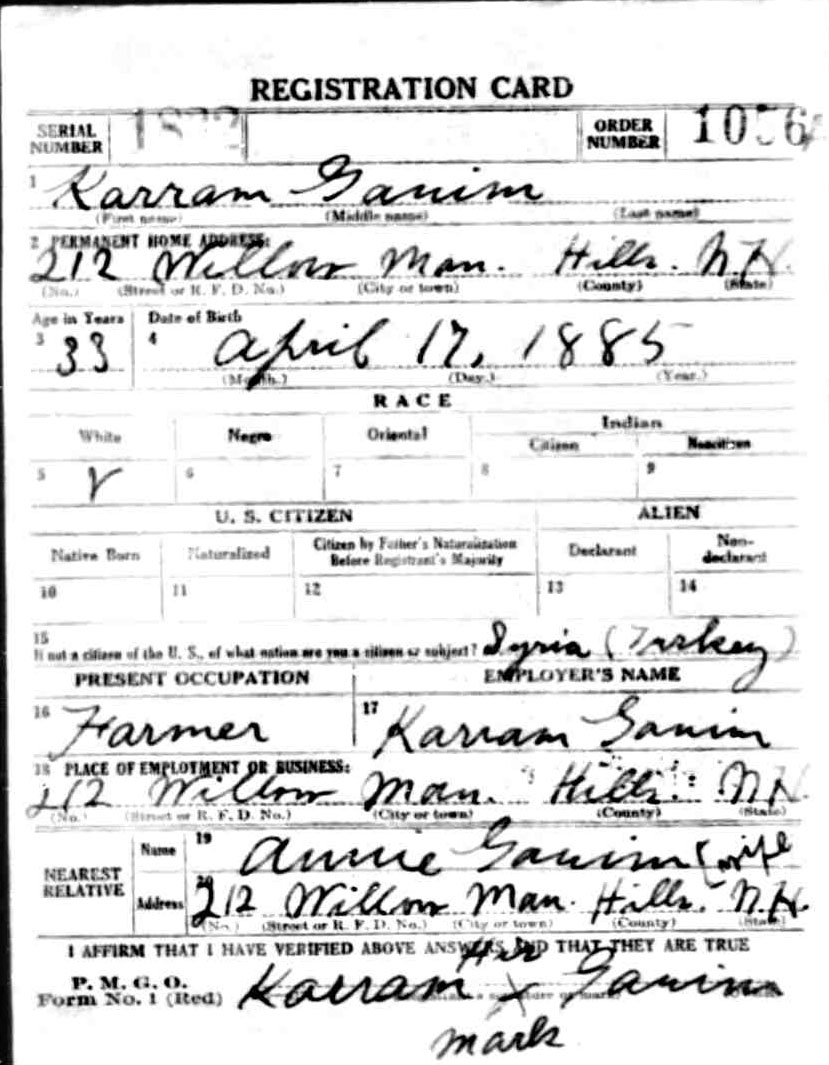 REGISTRATION CARD
SERIAL NUMBER ORDER NUMBER
1 Karram Ganim
(First name) (Middle name) (Last name)
2 PERMANENT HOME ADDRESS:
212 Willow Man. Hills. N.H.
(No.) (Street or R. F. D. No.) (City or town) (County) (State)
Age in Years Date of Birth
3 33 4 April 17, 1885
(Month.) (Day.) (Year.)
RACE
White Negro Oriental Indian
Citizen Noncitizen
5 6 7 8 9
U. S. CITIZEN ALIEN
Native Born Naturalized Citizen by Father's Naturalization Before Registrant's Majority Declarant Non-declarant
10 11 12 13 14
15
If not a citizen of the U. S., of what nation are you a citizen or subject? Syria (Turkey)
PRESENT OCCUPATION EMPLOYER'S NAME
16 Farmer 17 Karram Ganim
18 PLACE OF EMPLOYMENT OR BUSINESS:
212 Willow Man. Hills. N.H.
(No.) (Street or R. F. D. No.) (City or town) (County) (State)
NEAREST RELATIVE
Name 19 Annie Ganim (wife
Address 20 212 Willow Man. Hills. N.H.
(No.) (Street or R. F. D. No.) (City or town) (County) (State)
I AFFIRM THAT I HAVE VERIFIED ABOVE ANSWERS AND THAT THEY ARE TRUE
P. M. G. O.
Form No. 1 (Red)
His
Karram X Ganim
mark